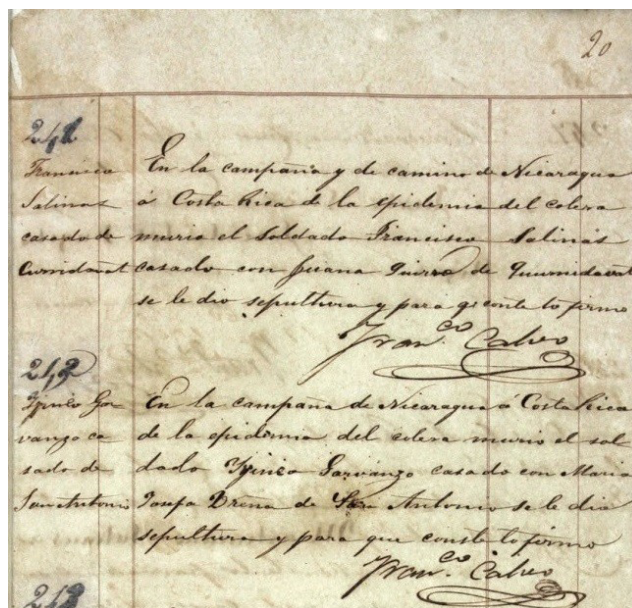 20
241
Francisco
Salinas
casado de
Curridabat
En la campaña y de camino de Nicaragua
á Costa Rica de la epidemia del colera
murio el soldado Francisco Salinas
casado con Juana
se le dio sepultura y para qe conte lo firmo
Franco. Calvo
242
Ga-
vanzo ca
sado de
San Antonio
En la campaña de Nicaragua á Costa Rica
de la epidemia del colera murio el sol
dado Garvanzo casado con Maria
Josefa de San Antonio se le dio
sepultura y para que conste lo firmo
Franco. Calvo
243